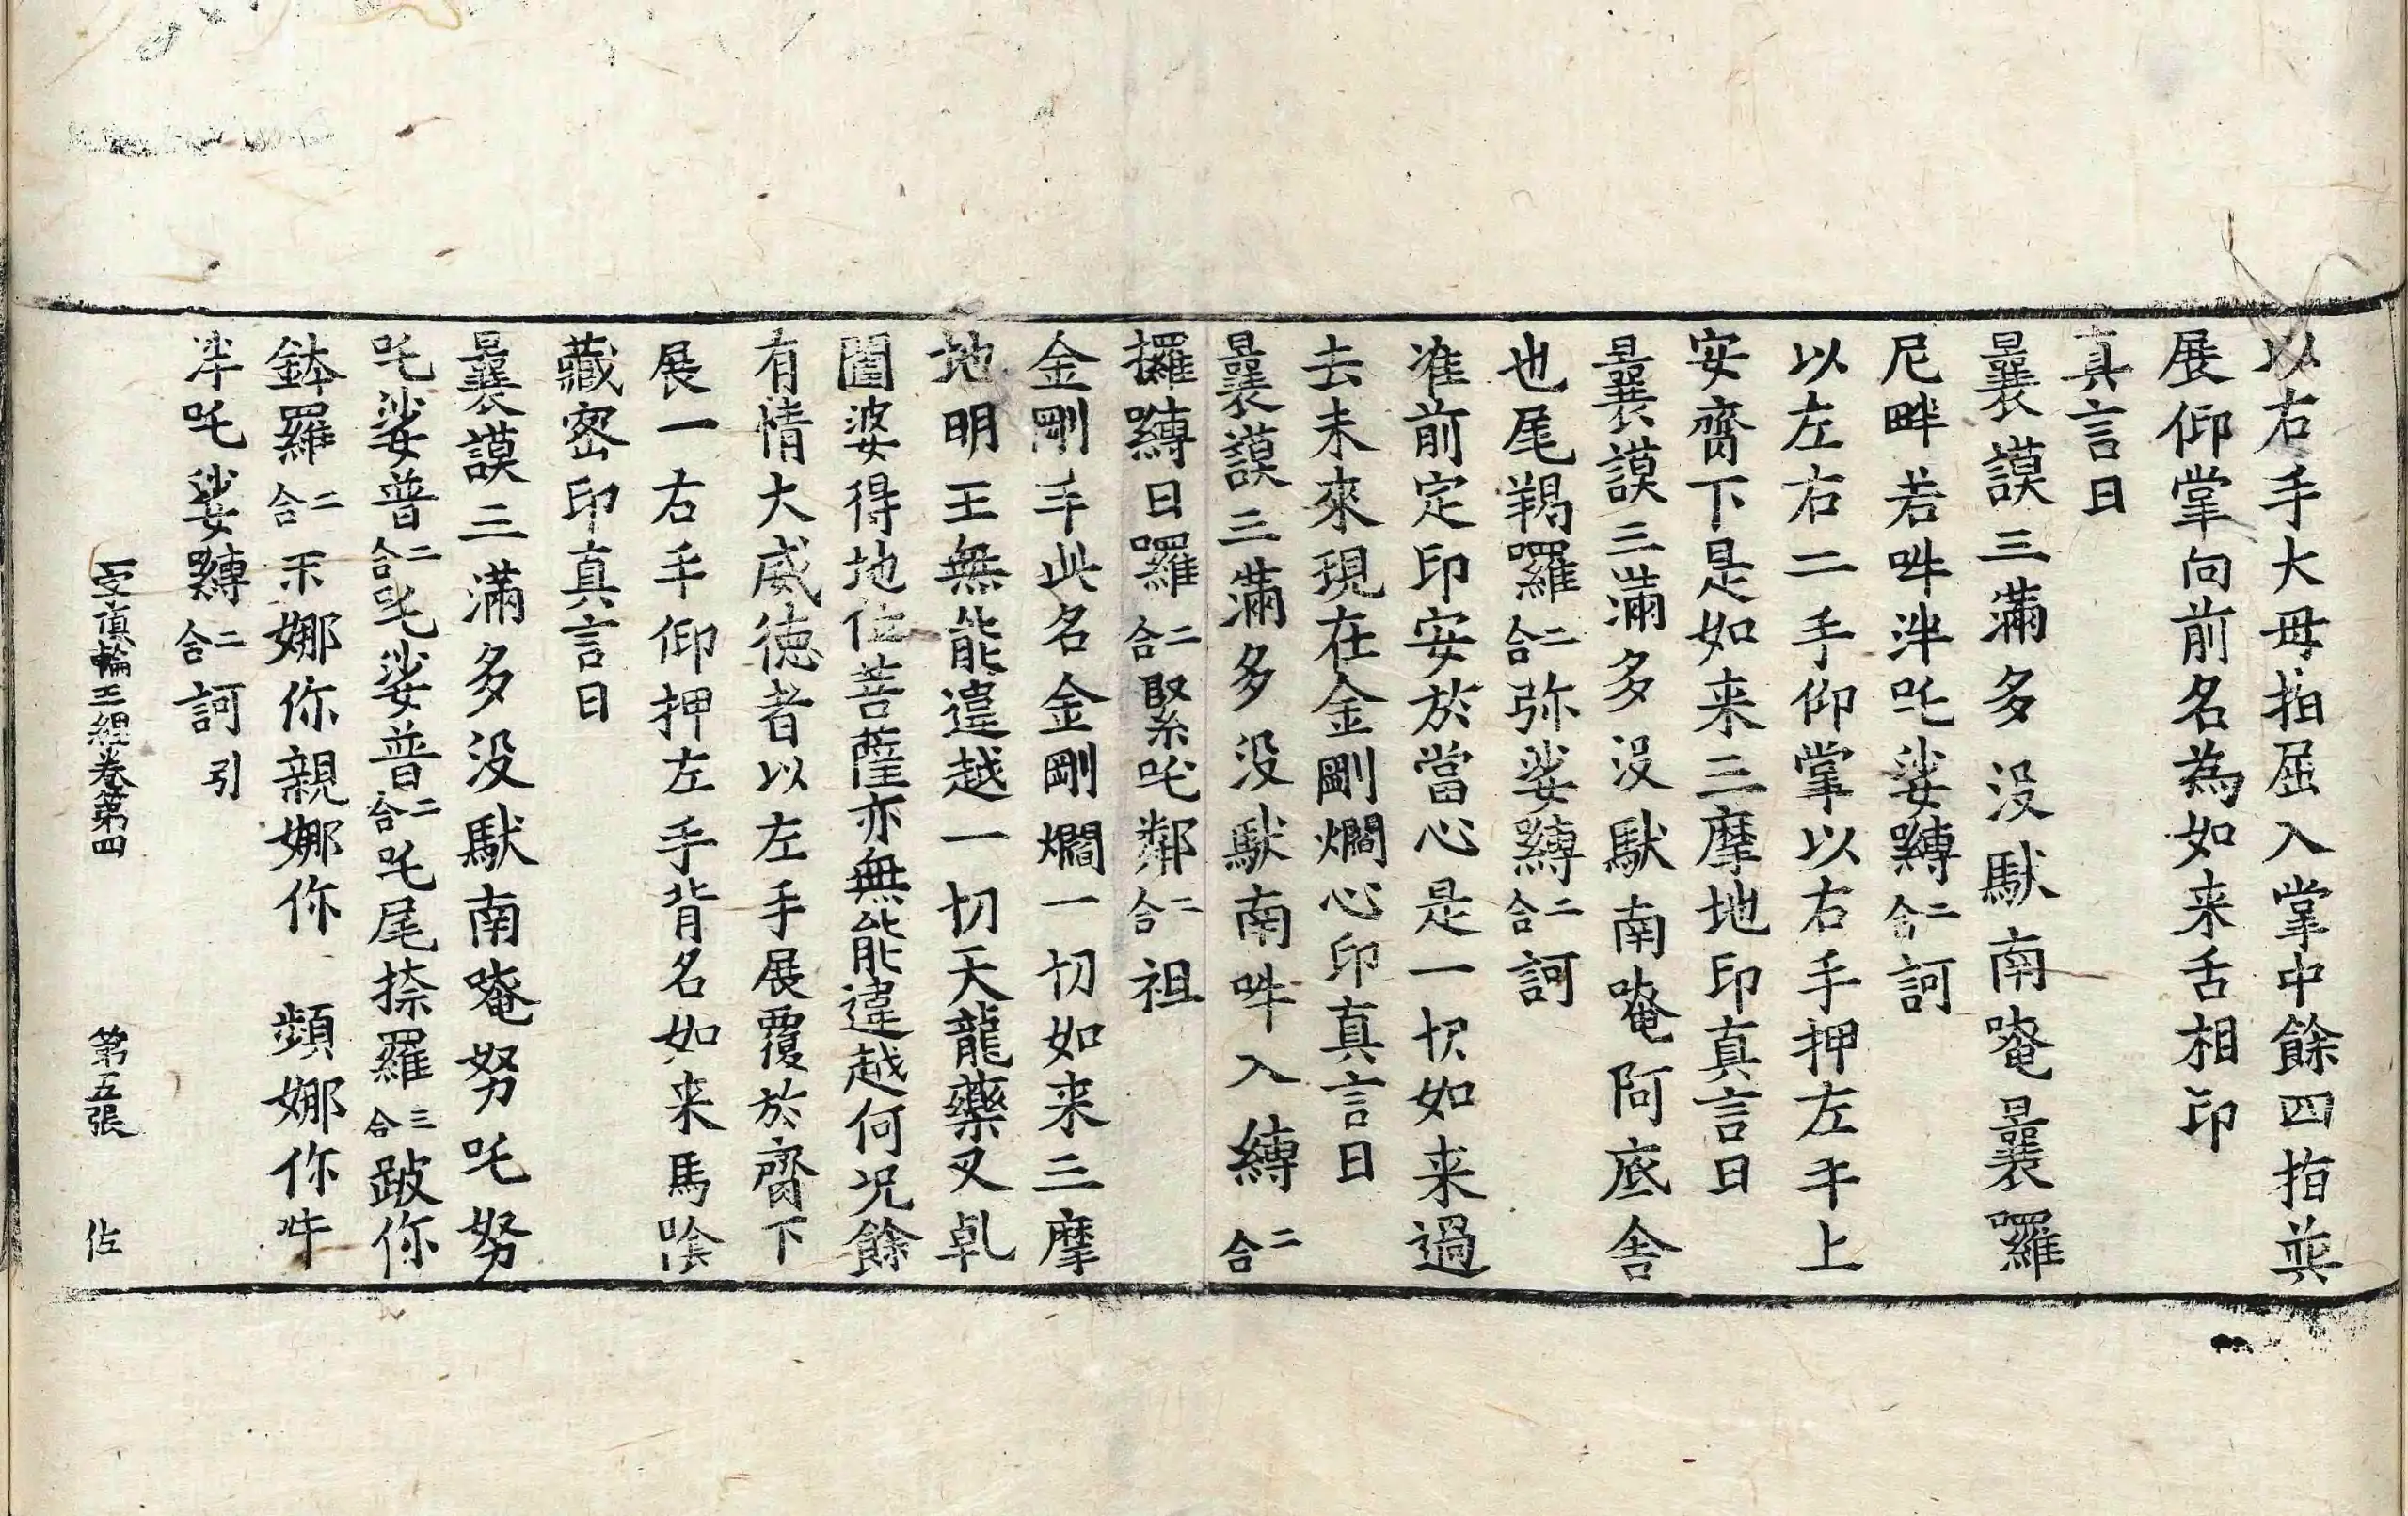 以右手大母指屈入掌中餘四指並
展仰掌向前名為如来舌相印
真言曰
曩謨三滿多没馱南唵曩囉
尼畔若吽泮吒娑嚩二合訶
以左右二手仰掌以右手押左手上
安齎下是如来三摩地印真言曰
曩謨三滿多没馱南唵阿底舎
也尾羯囉二合弥娑嚩二合訶
准前定印安於當心是一切如来過
去未來現在金剛爓心印真言曰
曩謨三滿多没馱南吽入嚩二合
攞嚩日囉二合緊吒鄰二合祖
金剛手此名金剛爓一切如来三摩
地明王無能違越一切天龍藥叉乹
闥婆得地位菩薩亦無能違越何况餘
有情大威徳者以左手展覆於齎下
展一右手仰押左手背名如来馬隂
藏密印真言曰
曩謨三滿多没馱南唵努吒努
吒娑普二合吒娑普二合吒尾捺羅三合跛你
鉢羅二合 娜你親娜你 頻娜你吽
泮吒娑嚩二合訶引
一字頂輪王經卷第四 第五張 佐